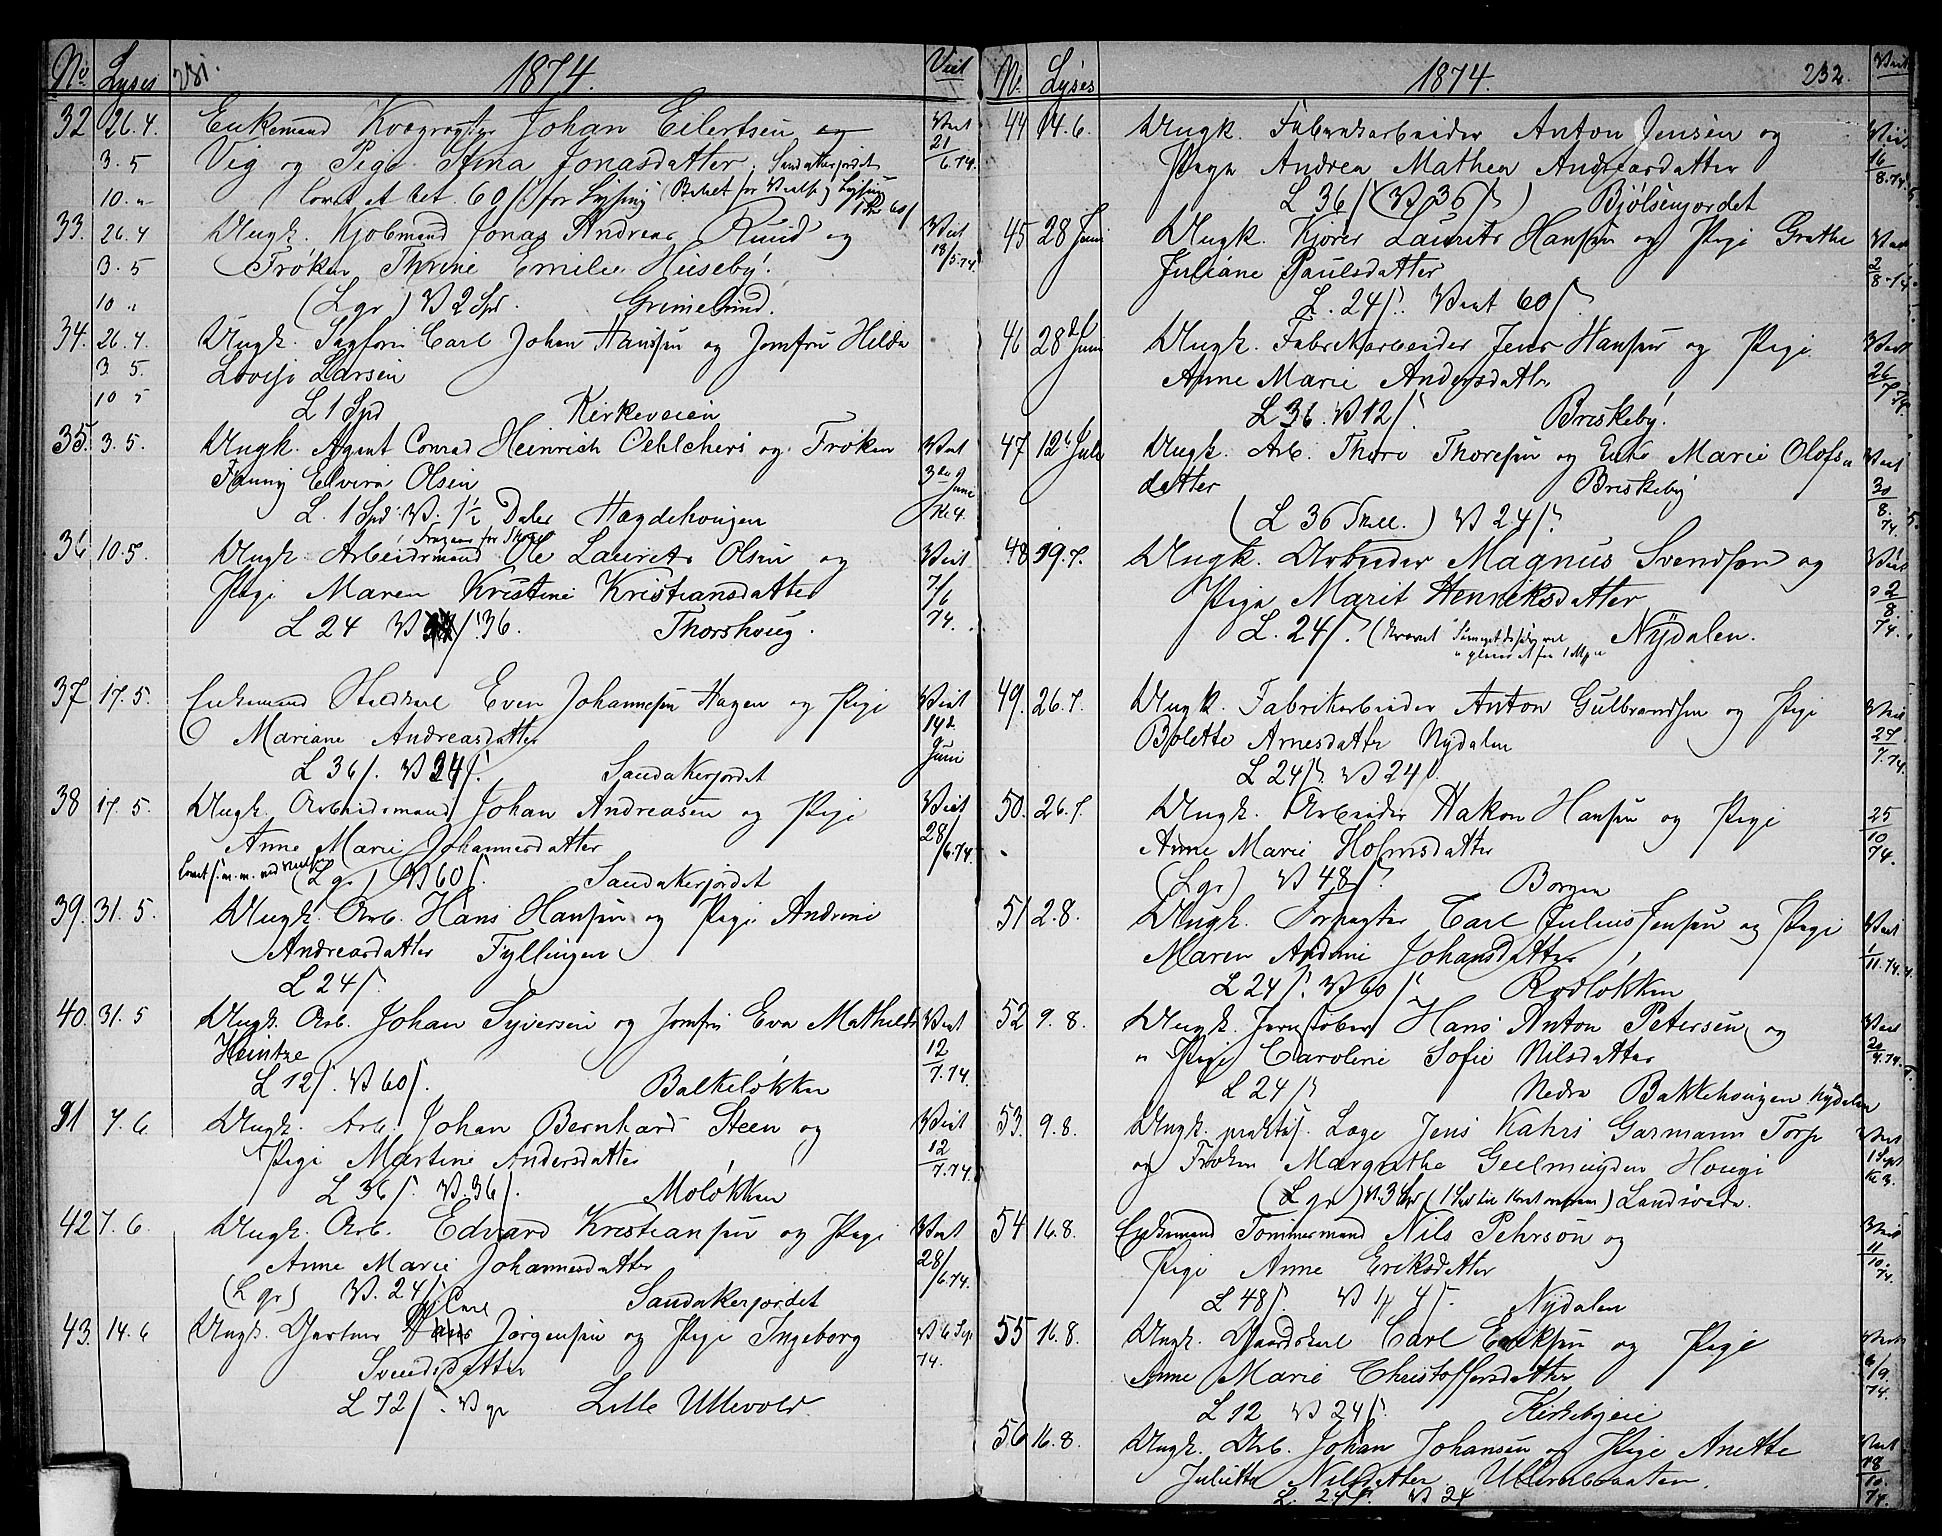 No Lyses 231. 1874. Viet
32 26.4. Enkemand Johan Eilertsen
3.5 Vig og Pige Stina Jonasdatter, Sandakerjordet Viet 21/6.74.
10.„ lovet at bet. 60 ſ for Lysing (Betalt for Vielse og Lysing 60 ſ
33. 26.4 Ungk. Kjøbmand Jonas Andreas Ruud og Viet 13/5.74.
3.5 Frøken Thrine Emilie Huseby.
10 „ (L gr) V 2 Spd Grimelund.
34. 26.4. Ungk. Carl Johan Hansen og Jomfru Hilda
3. 5. Lovise Larsen
10 5 L 1 Spd Kirkeveien
35. 3.5. Ungk. Agent Conrad Heinrich Oehlchers og Frøken Viet
Fanny Elvira Olsen 3die Juni
L. 1 Spd V. 1½ Daler Hægdehougen Kl 4.
36 10.5. Ungk. Arbeidsmand Ole Laurits Olsen og Viet
Pige Maren Kristine Kristiansdatter 7/6
L 24 V ſ 36. Thorshoug. 74.
37 17.5. Enkemand Staldkarl Even Johannesen Hagen og Pige Viet
Mariane Andreasdatter 14d.
L 36 ſ. V 24 ſ. Sandakerjordet Juni
38 17.5. Ungk. Arbeidsmand Johan Andreasen og Pige Viet
Anne Marie Johannesdatter 28/6.74.
(L gr) V 60 ſ. Sandakerjordet
39. 31.5. Ungk. Arb. Hans Hansen og Pige Andrine
Andreasdatter Fyllingen
L 24 ſ
40. 31.5 Ungk. Arb. Johan Syversen og Jomfru Eva Mathilde Viet
Heintze 12/7.74.
L 12 ſ. V 60 ſ. Balkeløkken
41 7.6. Ungk. Arb. Johan Bernhard Steen og Viet
Pige Martine Andersdatter 12/7.74.
L 36 ſ. V. 36 ſ. Moløkken
42 7.6. Ungk. Arb. Edvard Kristiansen og Pige Viet
Anne Marie Johannesdatter 28/6.74.
(L gr) V. 24 ſ Sandakerjordet
43. 14.6 Ungk. Gartner Carl Jørgensen og Pige Ingeborg V 6 Sep
Svendsdatter 74.
L 72 ſ. V gr Lille Ullevold.
No. Lyses 1874. 232. Viet
44 14.6. Ungk. Fabrikarbeider Anton Jensen og Viet
Pige Andrea Mathea Andreasdatter 16/8.74.
L 36 ſ (V 36 ſ) Bjølsenjordet
45 28 Juni Ungk. Kjører Laurits Hansen og Pige Grethe Viet
Juliane Paulsdatter 2/8-74.
L. 24 ſ. Viet 60 ſ.
46 28de Juni Ungk. Fabrikarbeider Jens Hansen og Pige Viet
Anne Marie Andersdatter 26/7 74.
L 36. V 12 ſ. Briskeby.
47 12t Juli Ungk. Arb. Thore Thoresen og Enke Marie Olofs„ Viet
datter Briskeby 30/8.
(L 36 Skll.) V 24 ſ. 74.
48 19.7. Ungk. Arbeider Magnus Svendsen og Viet
Pige Marit Henriksdatter 2/8.
L. 24 ſ. Nydalen. 74.
49. 26.7. Ungk. Fabrikarbeider Anton Gulbrandsen og Pige Viet
Bolette Arnesdatter Nydalen 27/7.74.
L 24 ſ. V 24 ſ.
50. 26.7. Ungk. Arbeider Hakon Hansen og Pige 25/10
Anne Marie Holmsdatter 74.
(L gr) V 48 ſ. Borgen
51 2.8. Ungk. Forpagter Carl Julius Jensen og Pige Viet
Maren Andrine Johansdatter 1/11.74.
L 24 ſ. V 60 ſ Rodløkken
52 9.8. Ungk. Jernstøber Hans Anton Petersen og Viet
„ Pige Caroline Sofie Nilsdatter 20/9.74.
L 24 ſ Nedre Bakkehougen Nydalen
53. 9.8. Ungk. praktis. Læge Jens Kahrs Garmann Torp Viet
og Frøken Margrethe Geelmuyden Hougi 1 Sept
(L gr) V. 3 Spd Landsveda. Kl 3.
54 16.8. Enkemand Tømmermand Nils Pehrsøn og Viet
Pige Anne Eriksdatter 11/10.74.
L 48 ſ. Nydalen
55 16.8. Ungk. Gaardskarl Carl Eriksen og Pige Viet
Anne Marie Christoffersdatter 6/9.
L 12 V 24 ſ. Kirkebyeie 74.
56 16.8. Ungk. Arb. Johan Johansen og Pige Anette Viet
Juliette Nilsdatter 18/10.
L. 24 ſ. V 24 74.